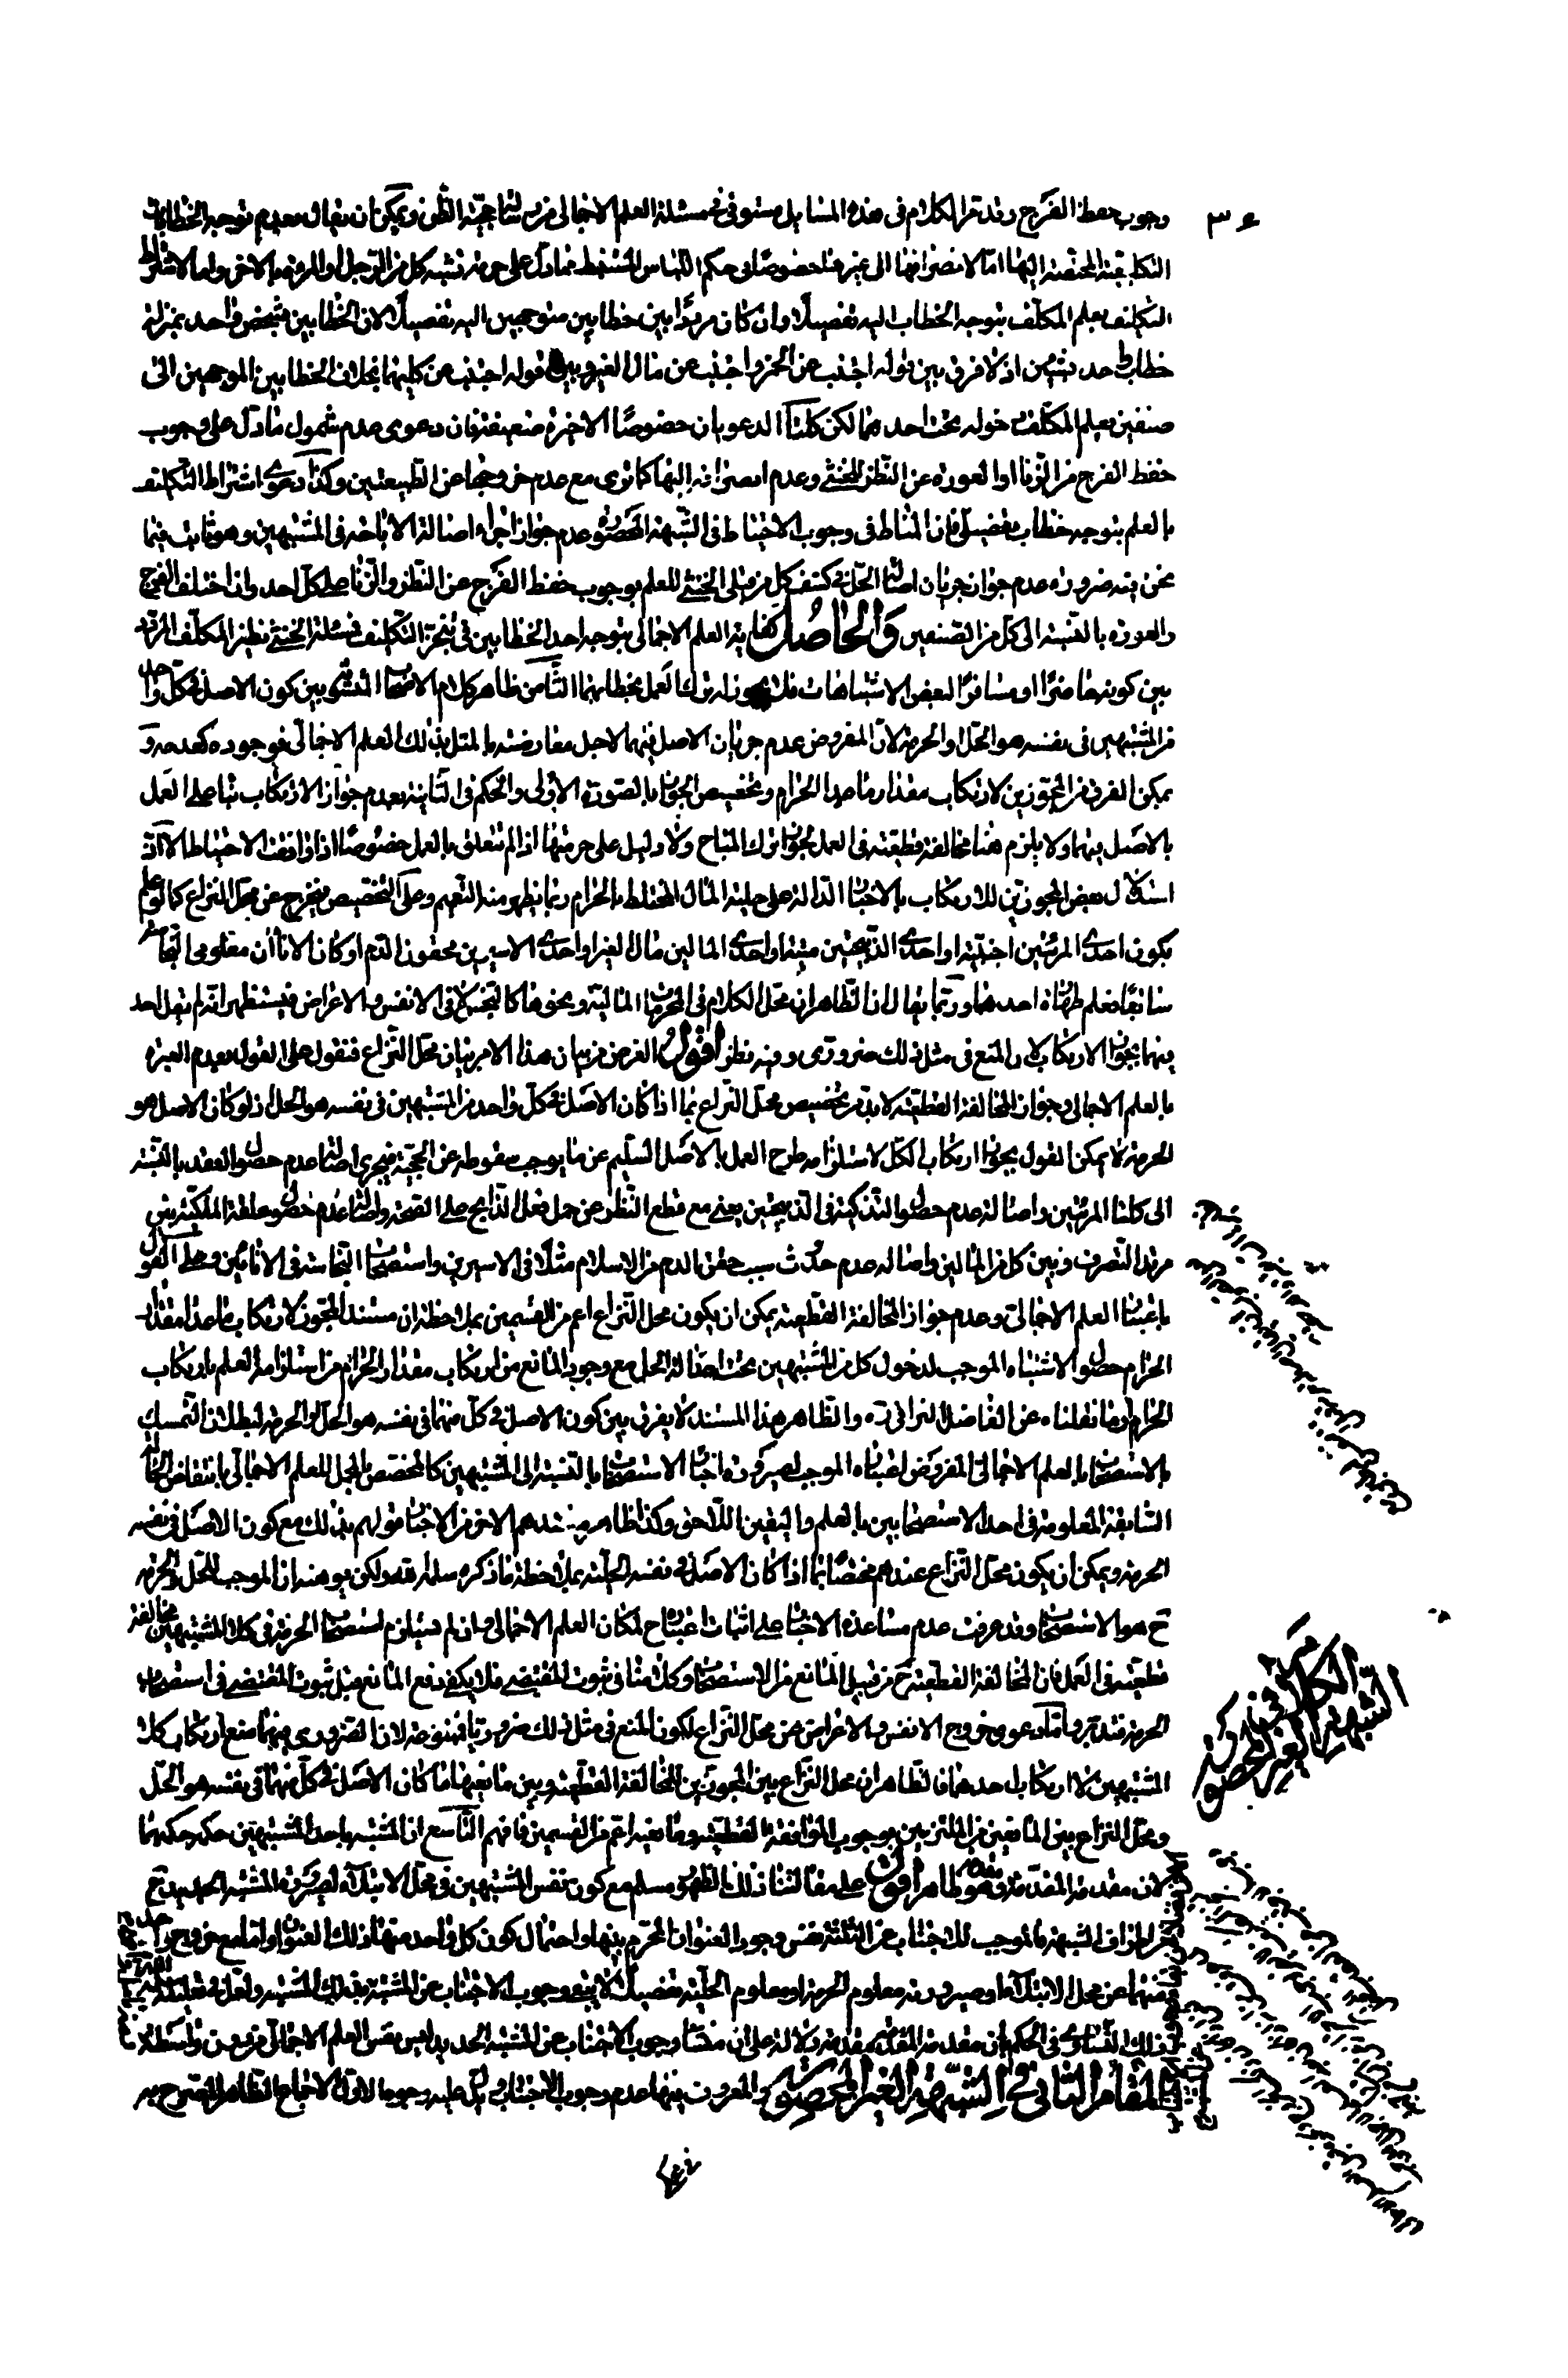 وجوب حفظ الفرج وقد مر الكلام فى هذه المسايل مستوفى فى مسئلة العلم الاجمالى من مسئلة حجية الظن ويمكن ان يقال بعدم توجه الخطابات
التكليفية المختصة اليها اما لانصرافها الى غيرها خصوصا فى حكم اللباس المستنبط مما دل على حرمة تشبه كل من الرجل او المرئة بالاخر واما لاشتراط
التكليف بعلم المكلف بتوجه الخطاب اليه تفصيلا وان كان مرددا بين خطابين متوجهين اليه تفصيلا لان الخطابين بشخص واحد بمنزلة
خطاب واحد بشيئين اذ لا فرق بين قوله اجتنب عن الخمر واجتنب عن مال الغير وبين قوله اجتنب عن كليهما بخلاف الخطابين الموجهين الى
صنفين يعلم المكلف دخوله تحت احدهما لكن كلتا الدعويان خصوصا الاخيرة ضعيفة فان دعوى عدم شمول ما دل على وجوب
حفظ الفرج من الزنا او العورة عن النظر للخنثى وعدم انصرافه اليها كما ترى مع عدم خروجها عن الطبيعتين وكذا دعوى اشتراط التكليف
بالعلم بتوجه خطاب تفصيلى فان المناط فى وجوب الاحتياط فى الشبهة المحصورة عدم جواز اجراء اصالة الاباحة فى المشتبهين وهو ثابت فيما
نحن فيه ضرورة عدم جواز جريان اصالة الحل فى كشف كل من قبلى الخنثى للعلم بوجوب حفظ الفرج عن النظر والزنا على كل احد وان اختلف الفرج
والعورة بالنسبة الى كل من الصنفين والحاصل كفاية العلم الاجمالى بتوجه احد الخطابين فى تنجز التكليف فمسئلة الخنثى نظير المكلف المردد
بين كونه حاضرا او مسافرا لبعض الاشتباهات فلا يجوز له ترك العمل بخطابهما الثامن ظاهر كلام الاصحاب التسوى بين كون الاصل فى كل واحد
من المشتبهين فى نفسه هو الحل او الحرمة لان المفروض عدم جريان الاصل فيهما لاجل معارضته بالمثل بذلك العلم الاجمالى فوجوده كعدمه و
يمكن الفرق من المجوزين لارتكاب مقدار ما عدا الحرام وتخصيص الجواز بالصورة الاولى والحكم فى الثانية بعدم جواز الارتكاب بناء على العمل
بالاصل فيهما ولا يلزم هنا مخالفة قطعية فى العمل بجواز ترك المباح ولا دليل على حرمتها اذا لم تتعلق بالعمل خصوصا اذا وافقت الاحتياط الا ان
استدلال بعض المجوزين للارتكاب بالاخبار الدالة على حلية المال المختلط بالحرام ربما يظهر منه التعميم وعلى التخصيص فيخرج عن محل النزاع كما لو علم
بكون احدى المرئتين اجنبية او احدى الذبيحتين ميتة او احدى المالين مال الغير او احدى الاسيرين محقون الدم او كان الاناان معلومى النجاسة
سابقا فعلم طهارة احدهما وربما يقال ان الظاهر ان محل الكلام فى المحرمات المالية ونحوها كالنجس لا فى الانفس والاعراض فيستظهر انه لم يقل احد
فيهما بجواز الارتكاب لان المنع فى مثل ذلك ضرورى وفيه نظر اقول الغرض من بيان هذا الامر بيان محل النزاع فنقول على القول بعدم العبرة
بالعلم الاجمالى وجواز المخالفة القطعية لا بد من تخصيص محل النزاع بما اذا كان الاصل فى كل واحد من المشتبهين فى نفسه هو الحل اذ لو كان الاصل هو
الحرمة لا يمكن القول بجواز ارتكاب الكل لاستلزامه طرح العمل بالاصل السليم عن ما يوجب سقوطه عن الحجية فيجرى اصالة عدم حصول العقد بالنسبة
الى كلتا المرئتين واصالة عدم حصول التذكية فى الذبيحتين يعنى مع قطع النظر عن حمل فعل الذابح على الصحة واصالة عدم حصول علقة الملكية بين
مريد التصرف وبين كل من المالين واصالة عدم حدوث سبب حقن الدم من الاسلام مثلا فى الاسيرين واستصحاب النجاسة فى الانائين وعلى القول
باعتبار العلم الاجمالى وعدم جواز المخالفة القطعية يمكن ان يكون محل النزاع اعم من القسمين بملاحظة ان مستند المجوز لارتكاب ما عدا مقدار
الحرام حصول الاشتباه الموجب لدخول كل من المشتبهين تحت اصالة الحل مع وجود المانع من ارتكاب مقدار الحرام من استلزامه العلم بارتكاب
الحرام وما نقلناه عن الفاضل النراقى ره والظاهر هذا المستند لا يفرق بين كون الاصل فى كل منهما فى نفسه هو الحل او الحرمة لبطلان التمسك
بالاستصحاب بالعلم الاجمالى المفروض اعتباره الموجب لصيرورة اخبار الاستصحاب بالنسبة الى المشتبهين كالمخصص بالمجمل للعلم الاجمالى بانتقاض الحالة
السابقة المعلومة فى احد الاستصحابين بالعلم واليقين اللاحق وكذا ظاهر مستندهم الاخر من الاخبار قولهم بذلك مع كون الاصل فى نفسه
الحرمة ويمكن ان يكون محل النزاع عندهم مختصا بما اذا كان الاصل فى نفسه الحلية بملاحظة ما ذكره سلمه الله ولكن يوهنه ان الموجب للحل والحرمة
ح هو الاستصحاب وقد عرفت عدم مساعدة الاخبار على اثبات اعتباره ح لمكان العلم الاجمالى وان لم يستلزم استصحاب الحرمة فى كلا المشتبهين مخالفة
قطعية فى العمل فان المخالفة القطعية ح من قبيل المانع من الاستصحاب وكلامنا فى ثبوت المقتضى فلا يكفى دفع المانع قبل ثبوت المقتضى فى استصحاب
الحرمة فتدبر واما دعوى خروج الانفس والاعراض عن محل النزاع لكون المنع فى مثل ذلك ضروريا فممنوعة لان الضرورى فيهما منع ارتكاب كلا
المشتبهين لا ارتكاب احدهما فالظاهر ان محل النزاع بين المجوزين للمخالفة القطعية وبين مانعيها ما كان الاصل فى كل منهما فى نفسه هو الحل
ومحل النزاع بين المانعين من الملتزمين بوجوب الموافقة القطعية ومانعيه اعم من القسمين فافهم التاسع ان المشتبه باحد المشتبهين حكمه حكمهما
لان مقدمة المقدمة مقدمة وهو ظاهر اقول على مقالتنا ذلك الظهور مسلم مع كون نفس المشتبهين فى محل الابتلاء لصيرورة المشتبه الجديد ح
من اطراف الشبهة فالموجب للاجتناب عن الثلثة نفس وجود العنوان المحرم بينها واحتمال كون كل واحد منها ذلك العنوان واما مع خروج واحد
منهما عن محل الابتلاء او صيرورته معلوم الحرمة او معلوم الحلية تفصيلا لا يبقى وجوب الاجتناب عن المشتبه بذلك المشتبه ولعل فى تعليله
ذلك التساوى فى الحكم بان مقدمة المقدمة مقدمة دلالة على ان منشأ وجوب الاجتناب عن المشتبه الجديد ليس نفس العلم الاجمالى من دون واسطة
المقام الثانى فى الشبهة الغير المحصورة والمعروف فيها عدم وجوب الاجتناب ويدل عليه وجوه الاول الاجماع الظاهر المصرح به
الكلام فى
الشبهة الغير المحصورة